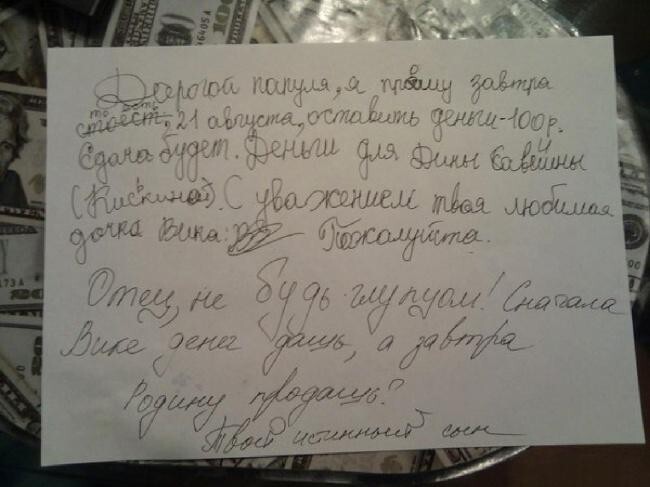 Дорогой папуля, я прошу завтра
то есть, 21 августа, оставить деньги - 100 р.
Сдача будет. Деньги для Дины
(Кискиной). С уважением твоя любимая
дочка Вика. Пожалуйста.
Отец, не будь глупцом! Сначала
Вике денег дашь, а завтра
Родину продашь?
Твой истинный сын